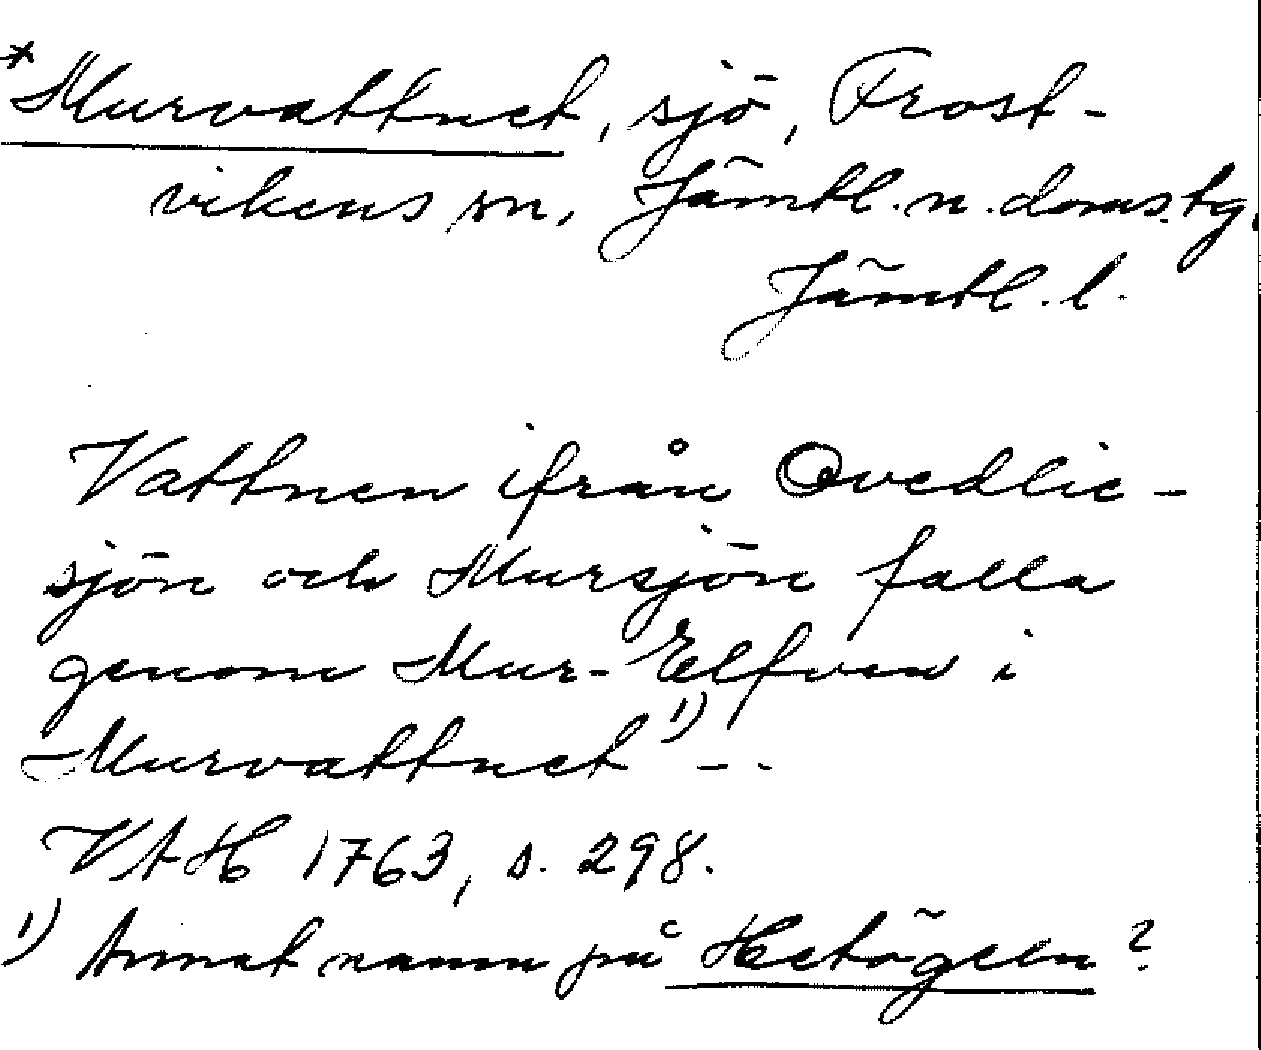 *Murvattnet, sjö, Frost-
vikens sn, Jämtl. n. doms.tg,
Jämtl. l.
Vattnen ifrån Qvedlie-
sjön och Mursjön falla
genom Mur-Elfven i
Murvattnet 1) - -
VAH 1763, s. 298.
1) Annat namn på Hetögeln?